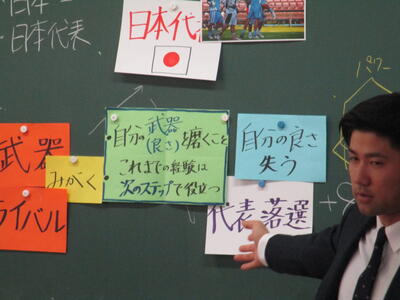 日本一
・日本代表
日本代
武器
みがく
ライバル
・自分の武器(良さ)を磨くこと
・これまでの経験は
次のステップで役立つ
自分の良さ
失う
代表落選
パワー